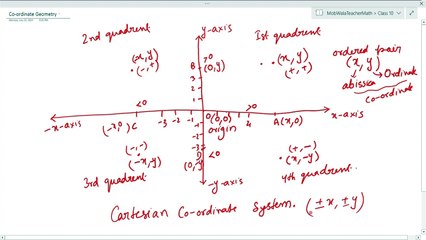 Co-ordinate Geometry
MobWalaTeacherMath > Class 10
2nd quadrant
y-axis
1st quadrant
ordered pair
(x, y)
abission
Ordinate
Co-ordinate
(x, y)
(-, +)
B
>0
(0, y)
(x, y)
(+, +)
<0
0(0,0)
>0
-x-axis
(-x,0) C
-3 -2 -1
origin
4
A(x,0)
x-axis
-1
-2
-3
(-, -)
(-x, -y)
D
<0
(0, -y)
(+, -)
(x, -y)
3rd quadrant
-y-axis
4th quadrant
Cartesian Co-ordinate System. (±x, ±y)